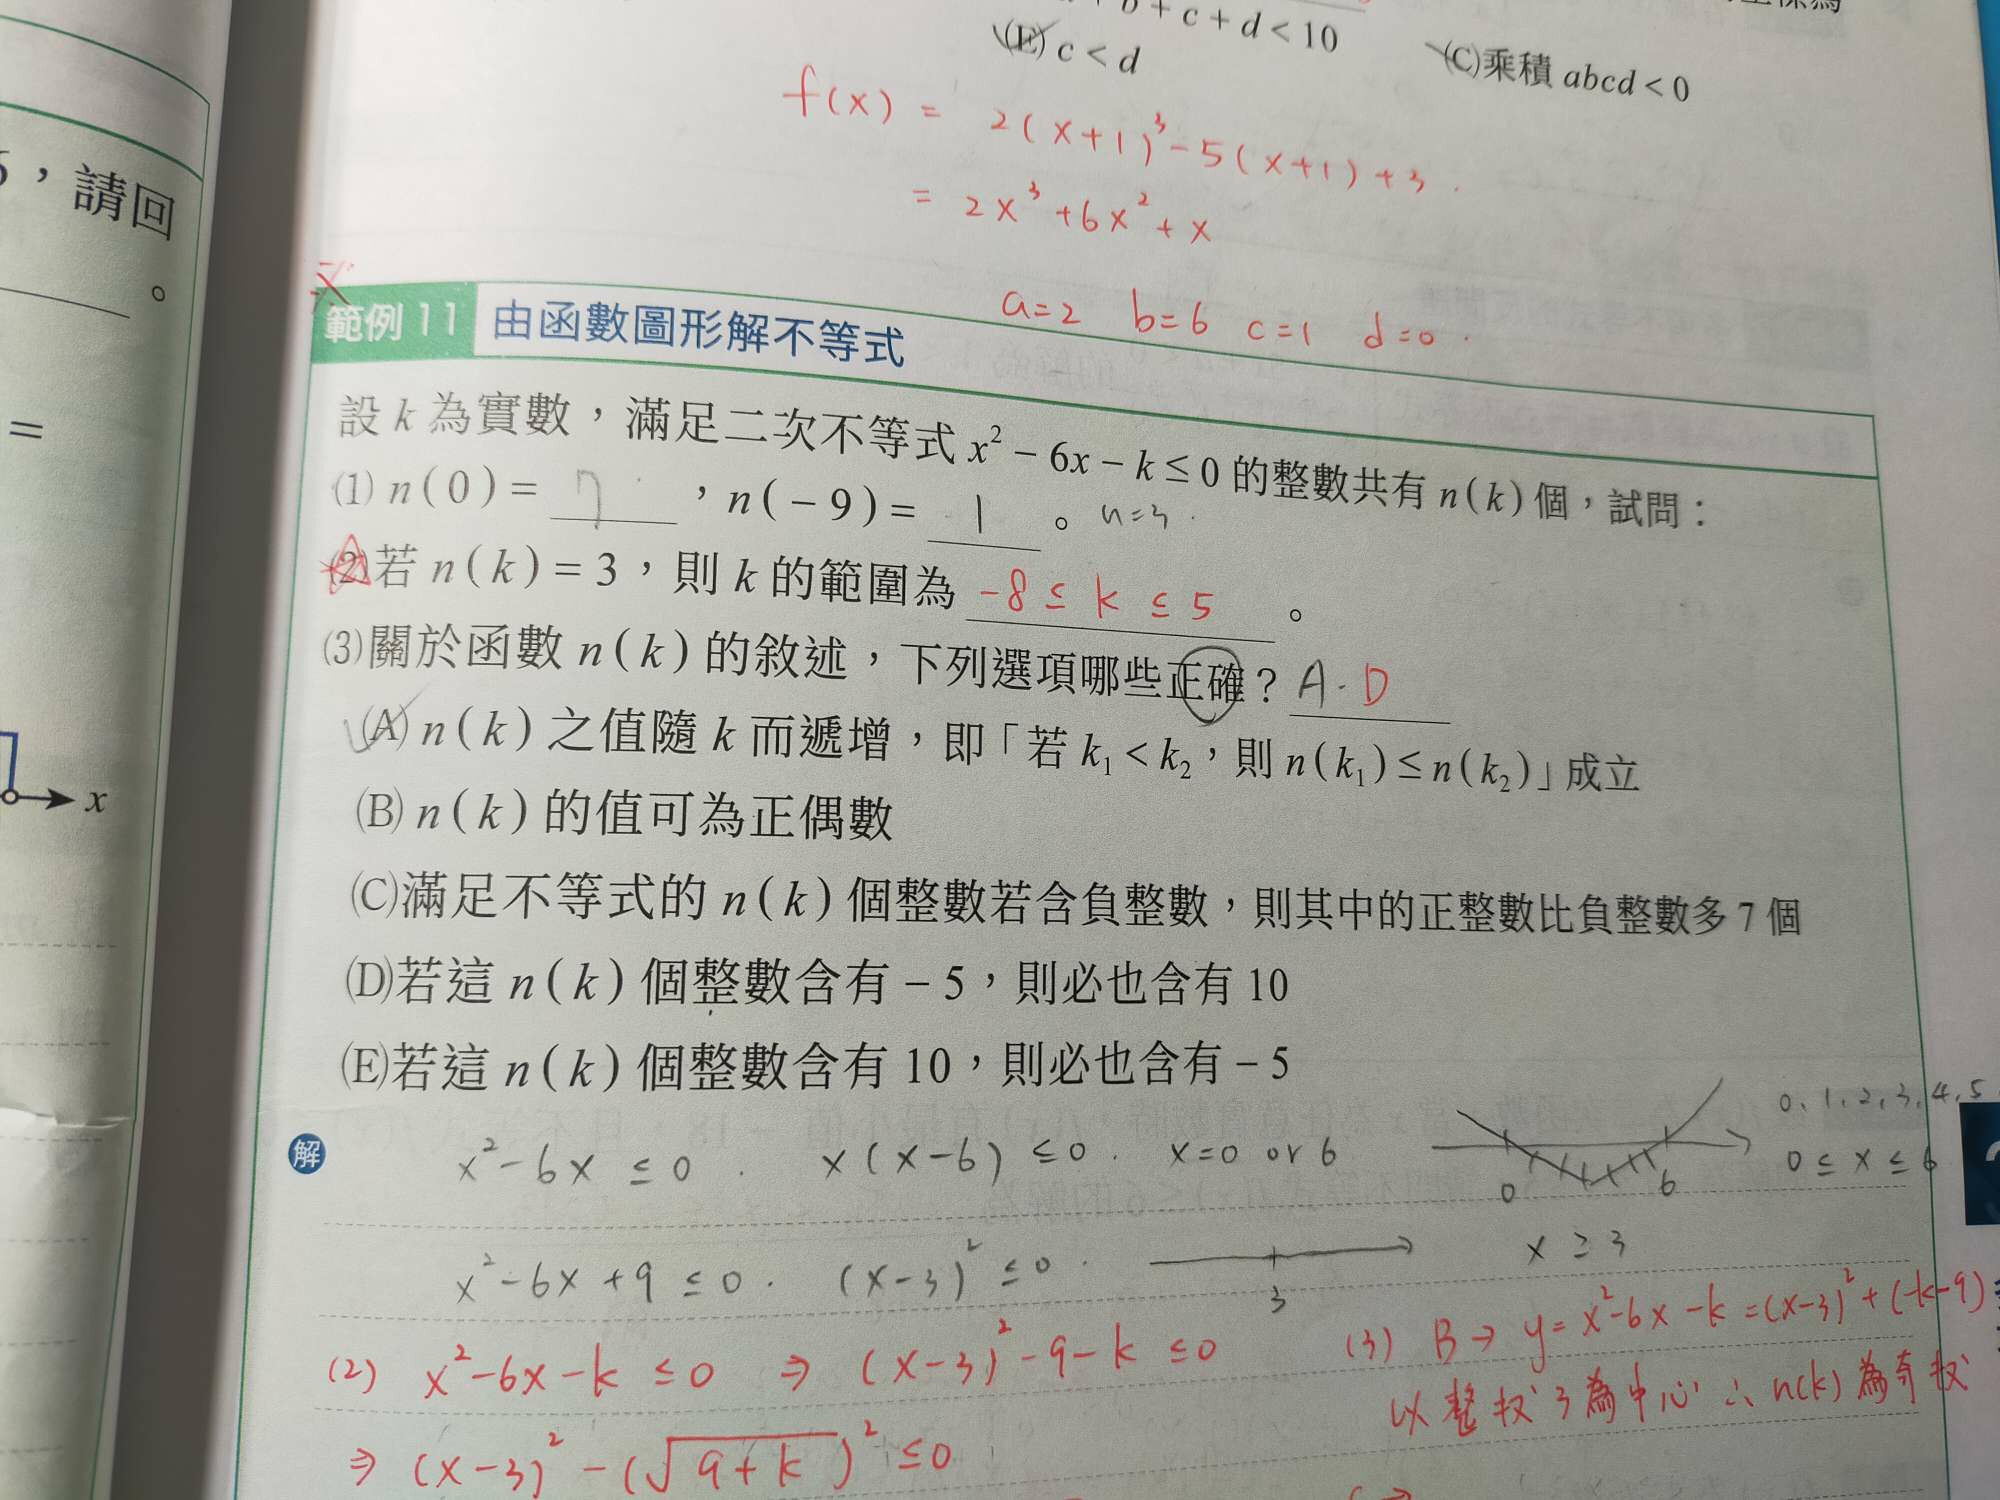 b + c + d < 10
(E) c < d
(C)乘積 abcd < 0
f(x) = 2(x+1)³-5(x+1)+3.
= 2x³+6x²+x
a=2 b=6 c=1 d=0.
，請回
。
=
x
範例 11 由函數圖形解不等式
設 k 為實數，滿足二次不等式 x² − 6x − k ≤ 0 的整數共有 n(k) 個，試問：
(1) n(0) = 7 ，n(−9) = 1 。
(2)若 n(k) = 3，則 k 的範圍為 -8 ≤ k ≤ 5 。
(3)關於函數 n(k) 的敘述，下列選項哪些正確？ A. D
(A) n(k) 之值隨 k 而遞增，即「若 k₁ < k₂，則 n(k₁) ≤ n(k₂)」成立
(B) n(k) 的值可為正偶數
(C)滿足不等式的 n(k) 個整數若含負整數，則其中的正整數比負整數多 7 個
(D)若這 n(k) 個整數含有 − 5，則必也含有 10
(E)若這 n(k) 個整數含有 10，則必也含有 − 5
解 x²-6x ≤ 0. x(x-6) ≤ 0. x=0 or 6
0 6
0、1、2、3、4、5
0 ≤ x ≤ 6
x²-6x+9 ≤ 0. (x-3)² ≤ 0.
3
x ≥ 3
(2) x²-6x-k ≤ 0 ⇒ (x-3)²-9-k ≤ 0
⇒ (x-3)²-(√9+k)² ≤ 0
(3) B → y=x²-6x-k=(x-3)²+(-k-9)
以整数3為中心 ∴ n(k)為奇数